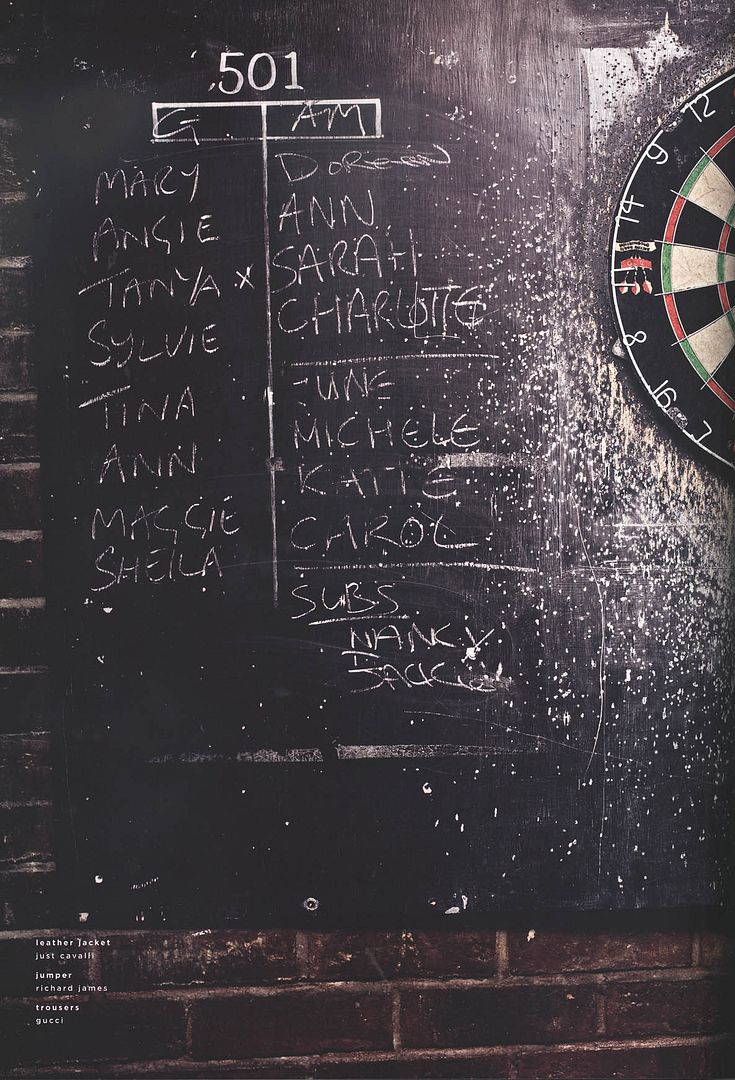 501
G AM
MARY DOREEN
ANGIE ANN
TANYA x SARAH
SYLVIE CHARLOTTE
TINA JUNE
ANN MICHELE
MAGGIE KATIE
SHEILA CAROL
SUBS
NANCY
12
9
14
11
8
16
7
leather jacket
just cavalli
jumper
richard james
trousers
gucci